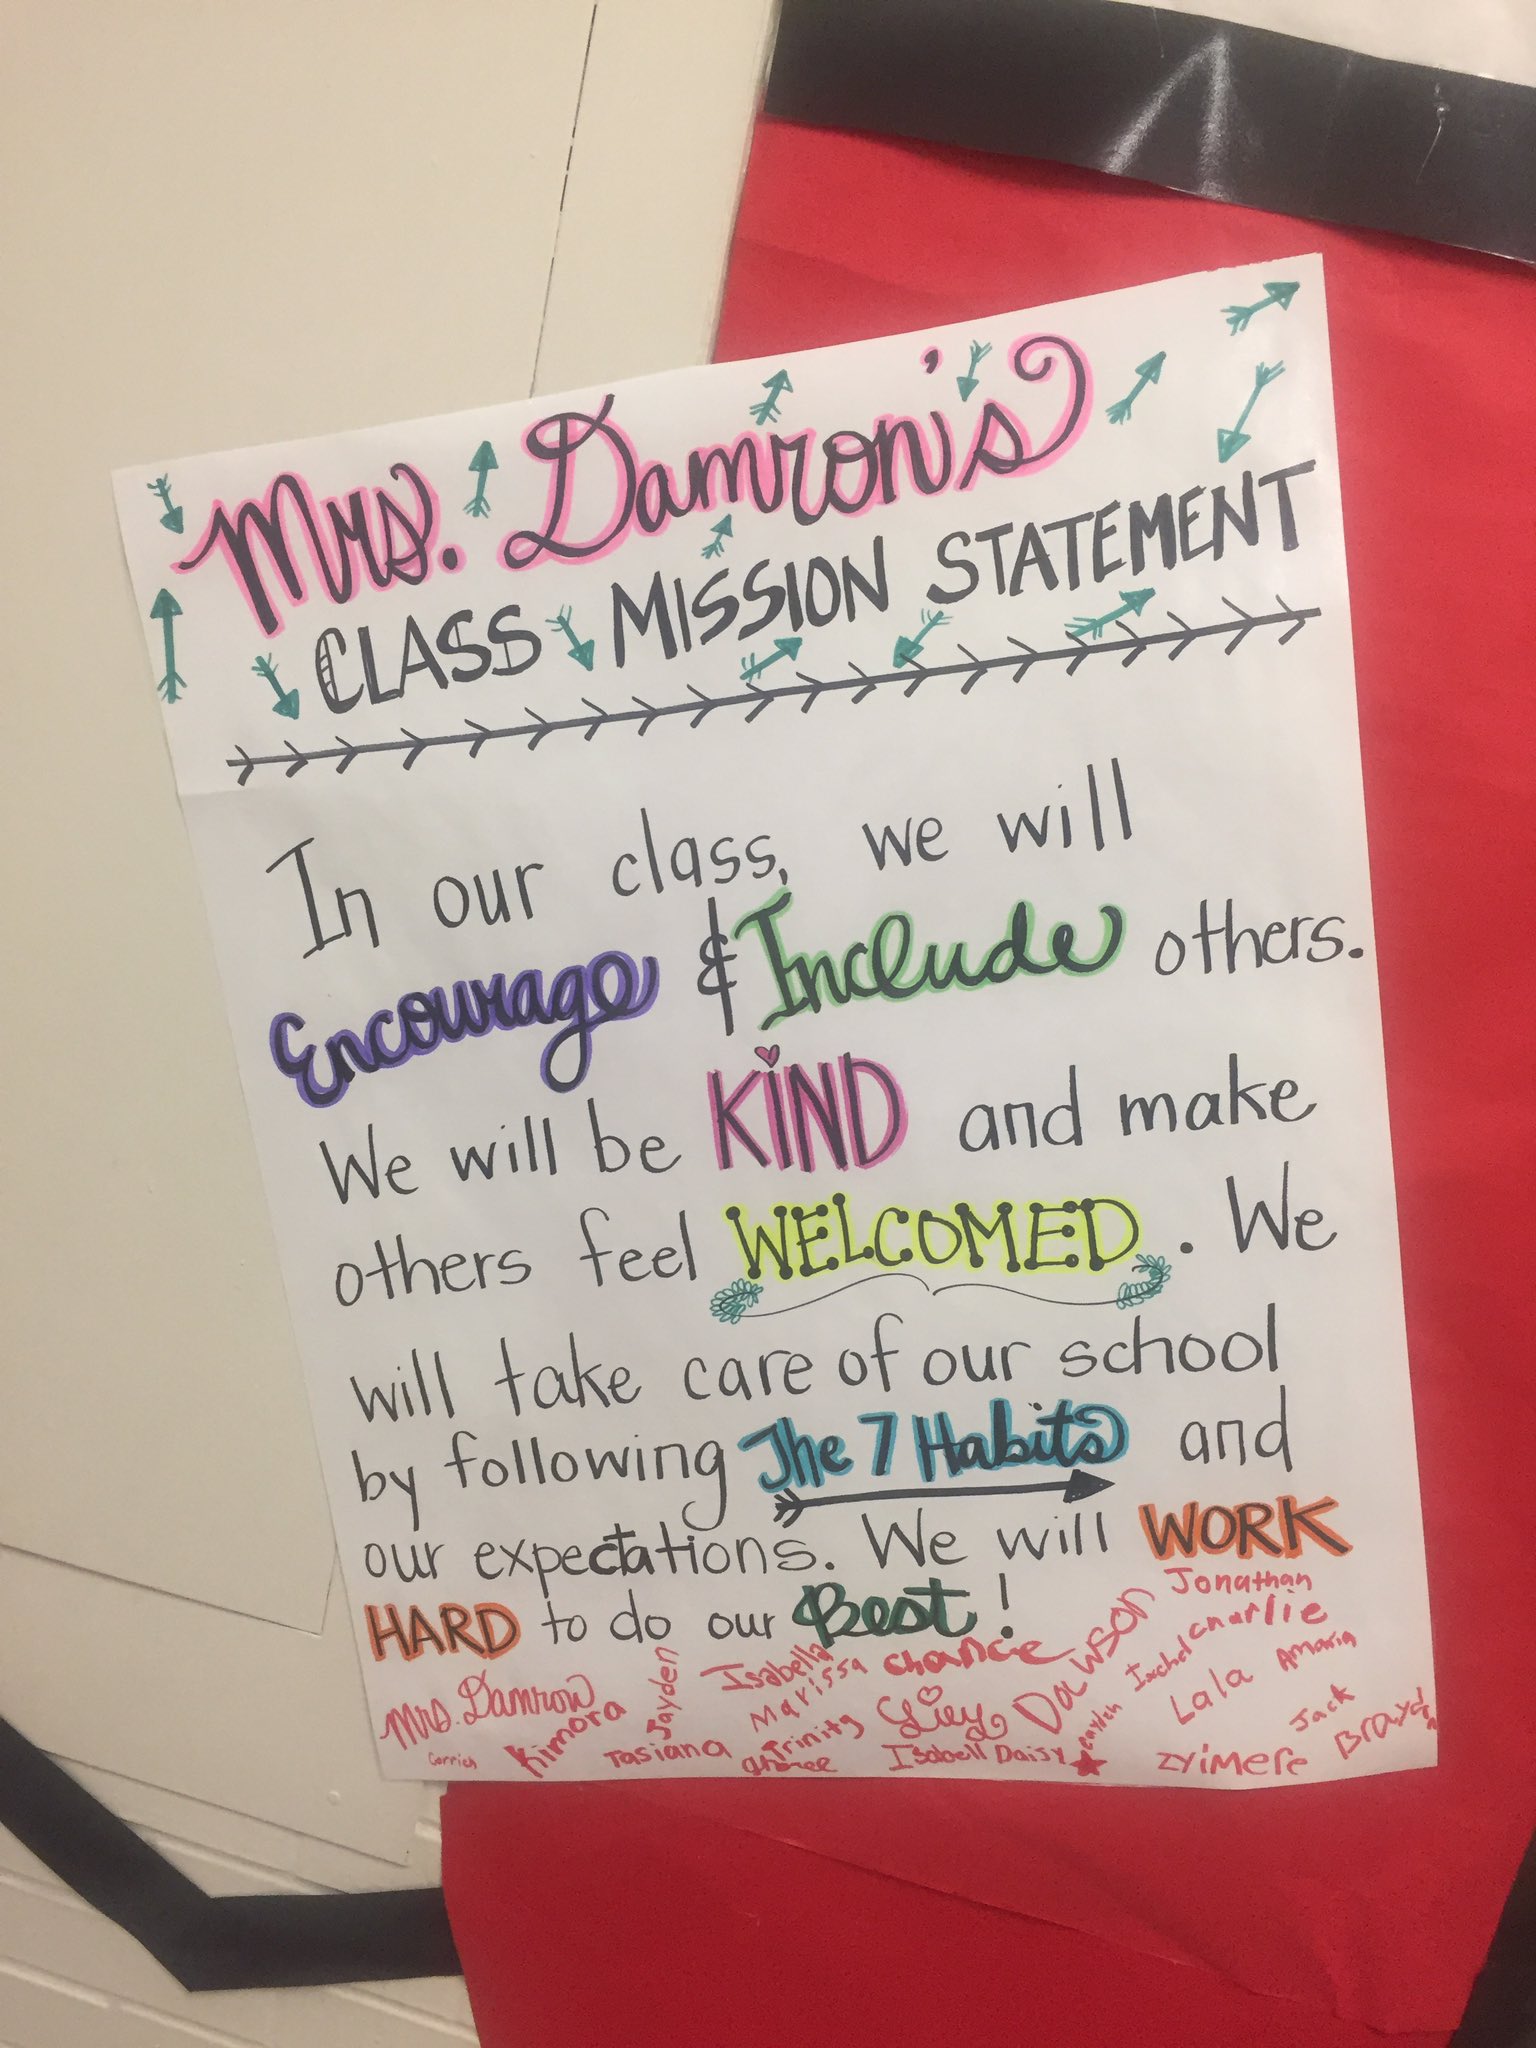 Mrs. Damron's
CLASS MISSION STATEMENT
In our class, we will
Encourage & Include others.
We will be KIND and make
others feel WELCOMED. We
will take care of our school
by following The 7 Habits and
our expectations. We will WORK
HARD to do our Best!
Jonathan
Charlie
Dawson
Chance
Isabella
Jayden
Marissa
Ixchel
Lala
Amaria
Mrs. Damron
Kimora
Trinity
Lily
Jack
Tasiana
Isabell
Daisy
Zyimere